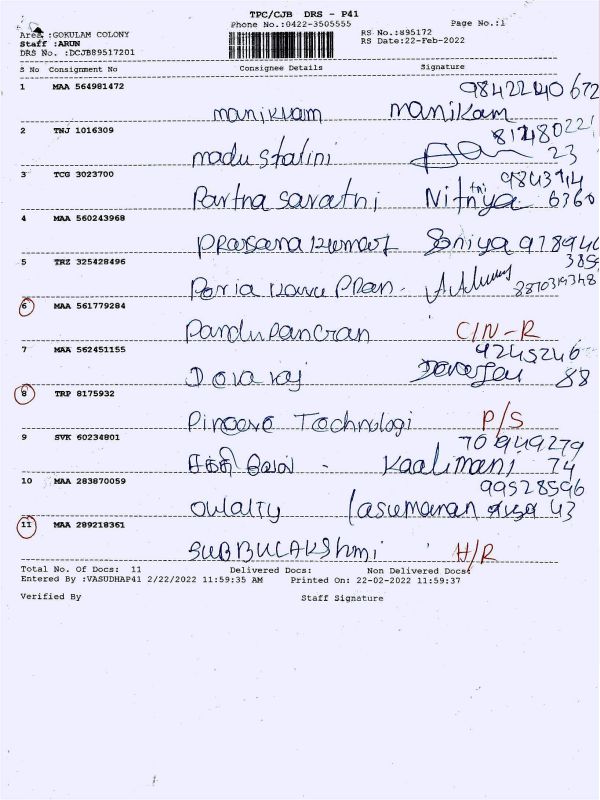 TPC/CJB DRS - P41
Phone No.:0422-3505555 Page No.:1
Area :GOKULAM COLONY RS No.:895172
Staff :ARUN RS Date:22-Feb-2022
DRS No. :DCJB89517201
S No Consignment No Consignee Details Signature
1 MAA 564981472 9842240672
manikvam manikam
2 TNJ 1016309
madu stalini 23
3 TCG 3023700 9843914
Partha saratni Nithya 6360
4 MAA 560243968
Prasana kumar Soniya 978940
5 TRZ 325428496 3859
Peria 8870314348
6 MAA 561779284
Pandurangan C/N-R
7 MAA 562451155 4245246
Devaraj 88
8 TRP 8175932
Technologi P/S
9 SVK 60234801 701949279
சக்தி வேல் - Kaalimani 74
10 MAA 283870059 99528596
43
11 MAA 289218361
SUBBULAKShmi H/R
Total No. Of Docs: 11 Delivered Docs: Non Delivered Docs:
Entered By :VASUDHAP41 2/22/2022 11:59:35 AM Printed On: 22-02-2022 11:59:37
Verified By Staff Signature